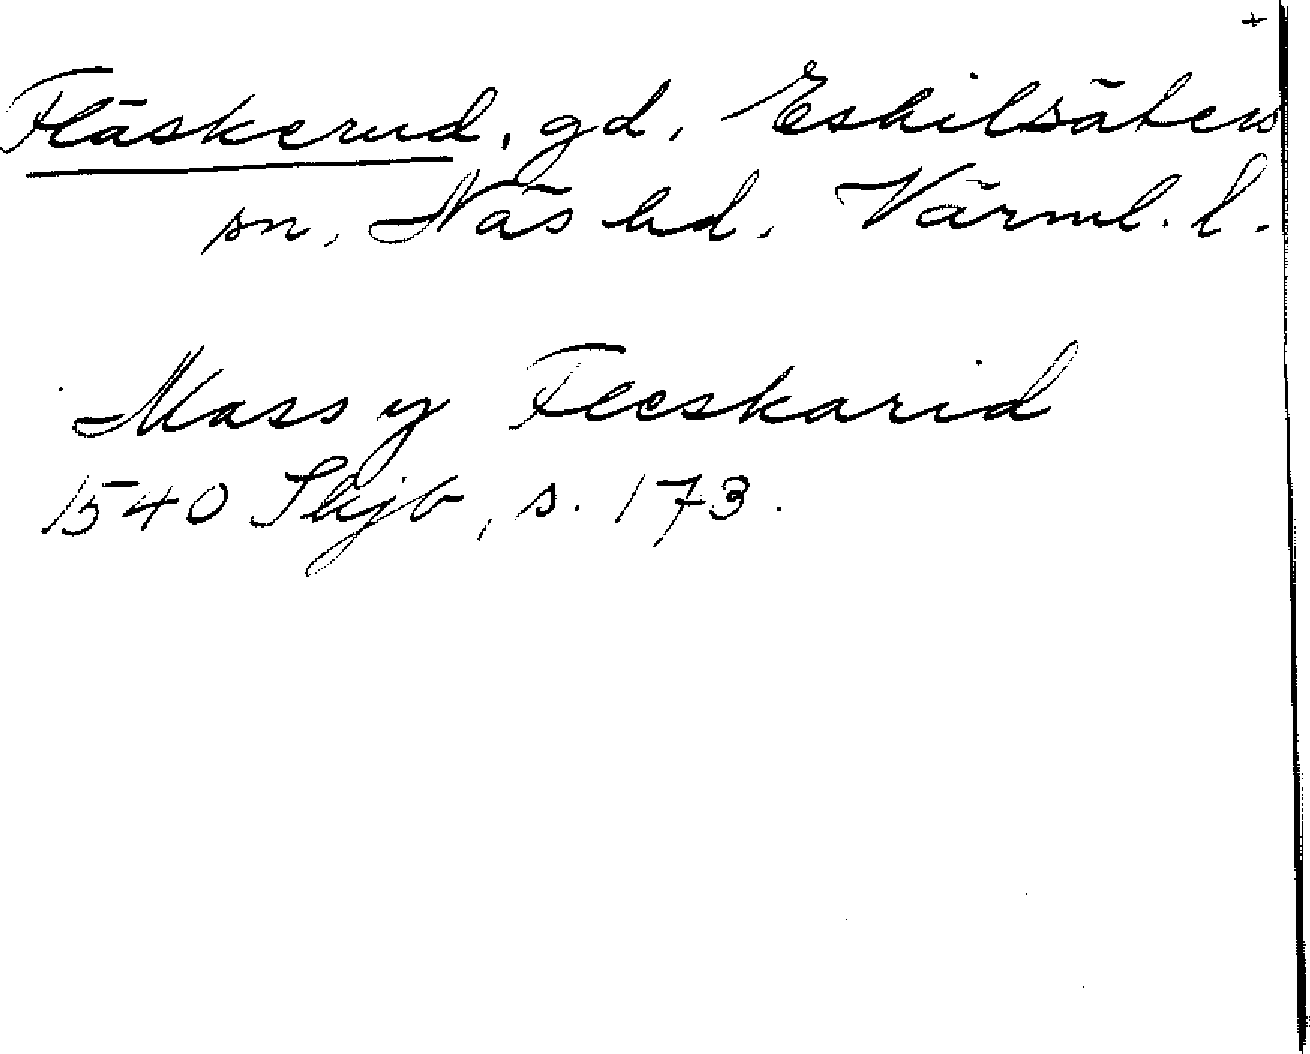 +
Fläskerud, gd, Eskilsäters
sn, Näs hd. Värml. l.
Mass y Fleeskarid
1540 Skjb, s. 173.